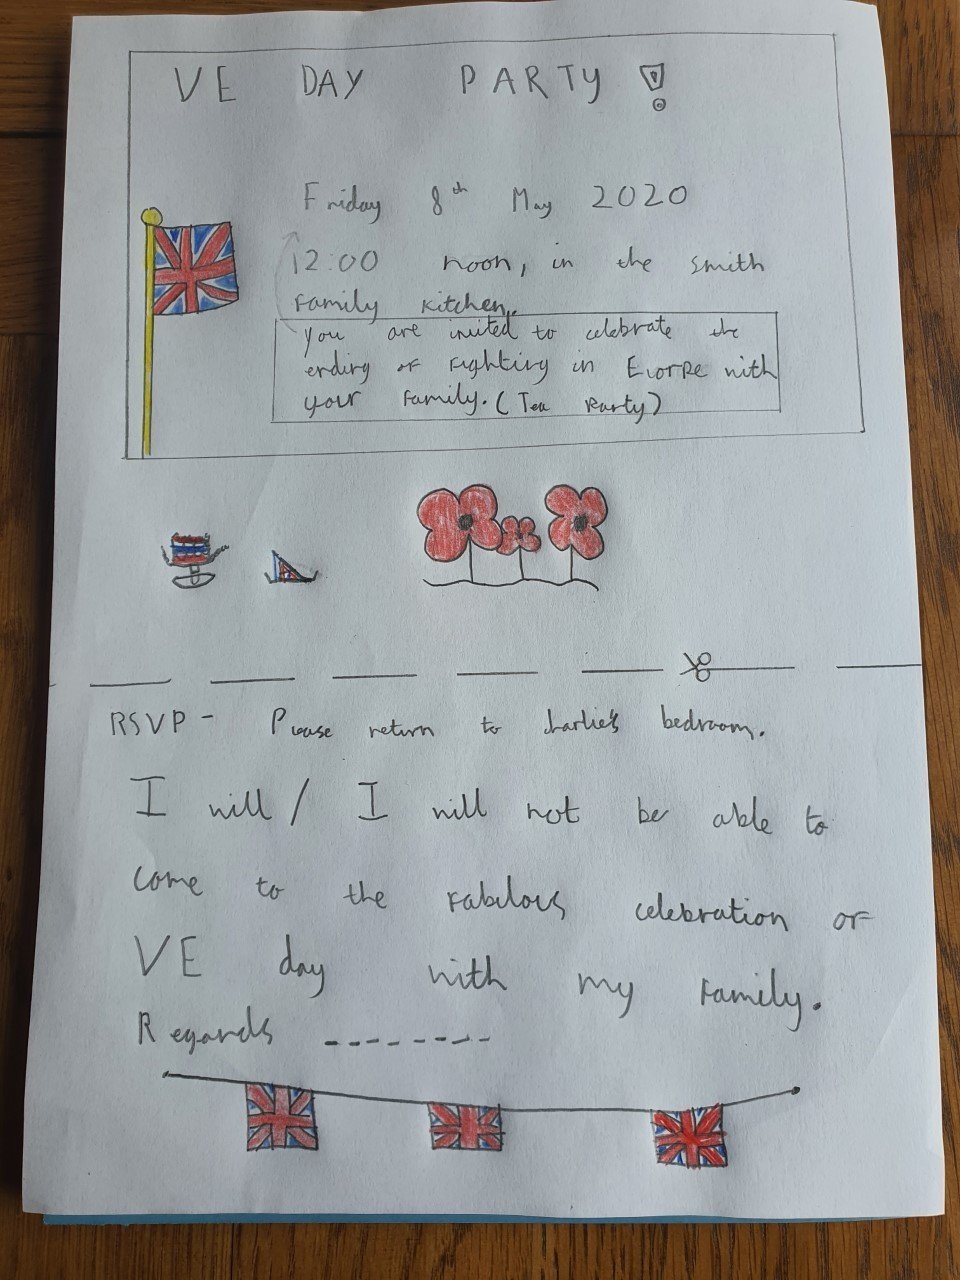 VE DAY PARTY!
Friday 8th May 2020
12:00 noon, in the smith
Family kitchen,
You are invited to celebrate the
ending of Fighting in Eorpe with
your Family. (Tea Party)
RSVP - Please return to charlie's bedroom.
I will / I will not be able to
come to the Fabulous celebration of
VE day with my Family.
Regards --------